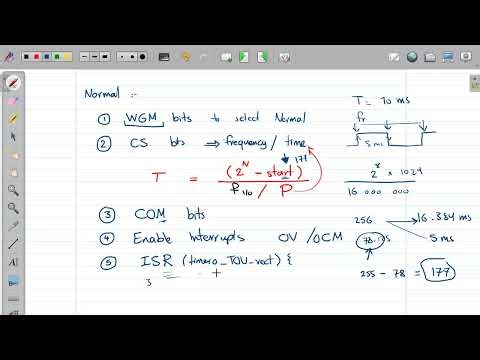 Normal :-
① WGM bits to select Normal
② CS bits ⇒ frequency / time
177
T = (2^N - start) / (F_I/O / P)
③ COM bits
④ Enable Interrupts OV / OCM
⑤ ISR (timer0_TOV_vect) {
}
T = 10 ms
5 ms
2^8 x 1024
16 000 000
256 16.384 ms
5 ms
255 - 78 = 177